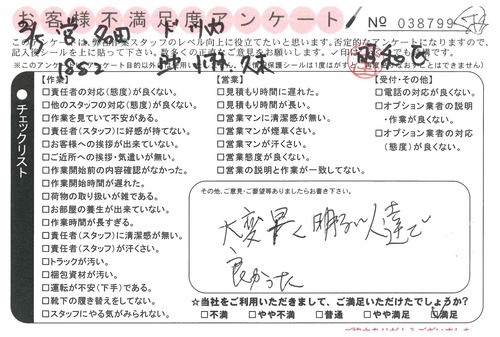 お客様不満足度アンケート
№ 038799
このアンケートは、弊社作業スタッフのレベル向上に役立てたいと思います。否定的なアンケートになりますので、
【作業】
□責任者の対応(態度)が良くない。
□他のスタッフの対応(態度)が良くない。
□作業を見ていて不安がある。
□責任者(スタッフ)に好感が持てない。
□お客様への挨拶が出来ていない。
□ご近所への挨拶・気遣いが無い。
□作業開始前の内容確認がなかった。
□作業開始時間が遅れた。
□荷物の取り扱いが雑である。
□お部屋の養生が出来ていない。
□作業時間が長すぎる。
□責任者(スタッフ)に清潔感が無い。
□責任者(スタッフ)が汗くさい。
□トラックが汚い。
□梱包資材が汚い。
□運転が不安(下手)である。
□靴下の履き替えをしてない。
□スタッフにやる気がみられない。
【営業】
□見積もり時間に遅れた。
□見積もり時間が長い。
□営業マンに清潔感が無い。
□営業マンが煙草くさい。
□営業マンが汗くさい。
□営業態度が良くない。
□営業の説明と作業が一致してない。
【受付・その他】
□電話の対応が良くない。
□オプション業者の説明
・作業が良くない。
□オプション業者の対応
(態度)が良くない。
チェックリスト
その他、ご意見・ご要望等ありましたらお書き下さい。
大変早く明るい人達で
良かった
☆当社をご利用いただきまして、ご満足いただけたでしょうか?
□不満 □やや不満 □普通 □やや満足 □満足